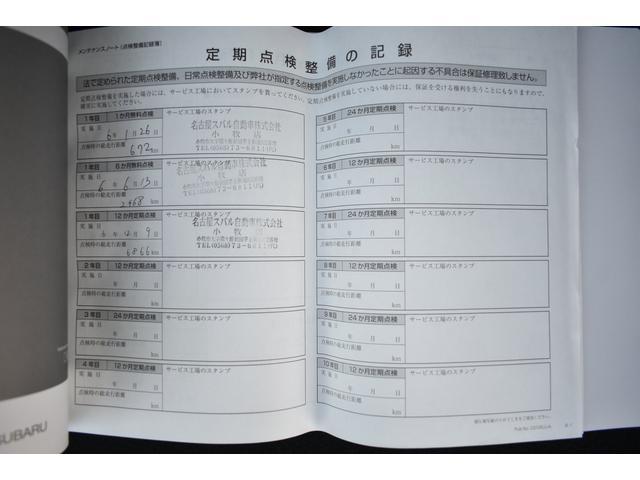 メンテナンスノート(点検整備記録簿)
定期点検整備の記録
法で定められた定期点検整備、日常点検整備及び弊社が指定する点検整備を実施しなかったことに起因する不具合は保証修理致しません。
定期点検整備を実施した場合には、サービス工場においてスタンプを貰ってください。定期点検整備を実施していない場合には、保証を受ける権利を失うことにもなりますので、
確実に実施してください。
1年目 1か月無料点検 サービス工場のスタンプ
実施日
6年 1月 26日
点検時の総走行距離
692km
名古屋スバル自動車株式会社
小牧店
TEL(0568)73-6811(代)
1年目 6か月無料点検 サービス工場のスタンプ
実施日
6年 6月 13日
点検時の総走行距離
2468km
名古屋スバル自動車株式会社
小牧店
TEL(0568)73-6811(代)
1年目 12か月定期点検 サービス工場のスタンプ
実施日
6年 12月 9日
点検時の総走行距離
6866km
名古屋スバル自動車株式会社
小牧店
TEL(0568)73-6811(代)
2年目 12か月定期点検 サービス工場のスタンプ
実施日
年 月 日
点検時の総走行距離
km
3年目 24か月定期点検 サービス工場のスタンプ
実施日
年 月 日
点検時の総走行距離
km
4年目 12か月定期点検 サービス工場のスタンプ
実施日
年 月 日
点検時の総走行距離
km
5年目 24か月定期点検 サービス工場のスタンプ
実施日
年 月 日
点検時の総走行距離
km
6年目 12か月定期点検 サービス工場のスタンプ
実施日
年 月 日
点検時の総走行距離
km
7年目 24か月定期点検 サービス工場のスタンプ
実施日
年 月 日
点検時の総走行距離
km
8年目 12か月定期点検 サービス工場のスタンプ
実施日
年 月 日
点検時の総走行距離
km
9年目 24か月定期点検 サービス工場のスタンプ
実施日
年 月 日
点検時の総走行距離
km
10年目 12か月定期点検 サービス工場のスタンプ
実施日
年 月 日
点検時の総走行距離
km
SUBARU